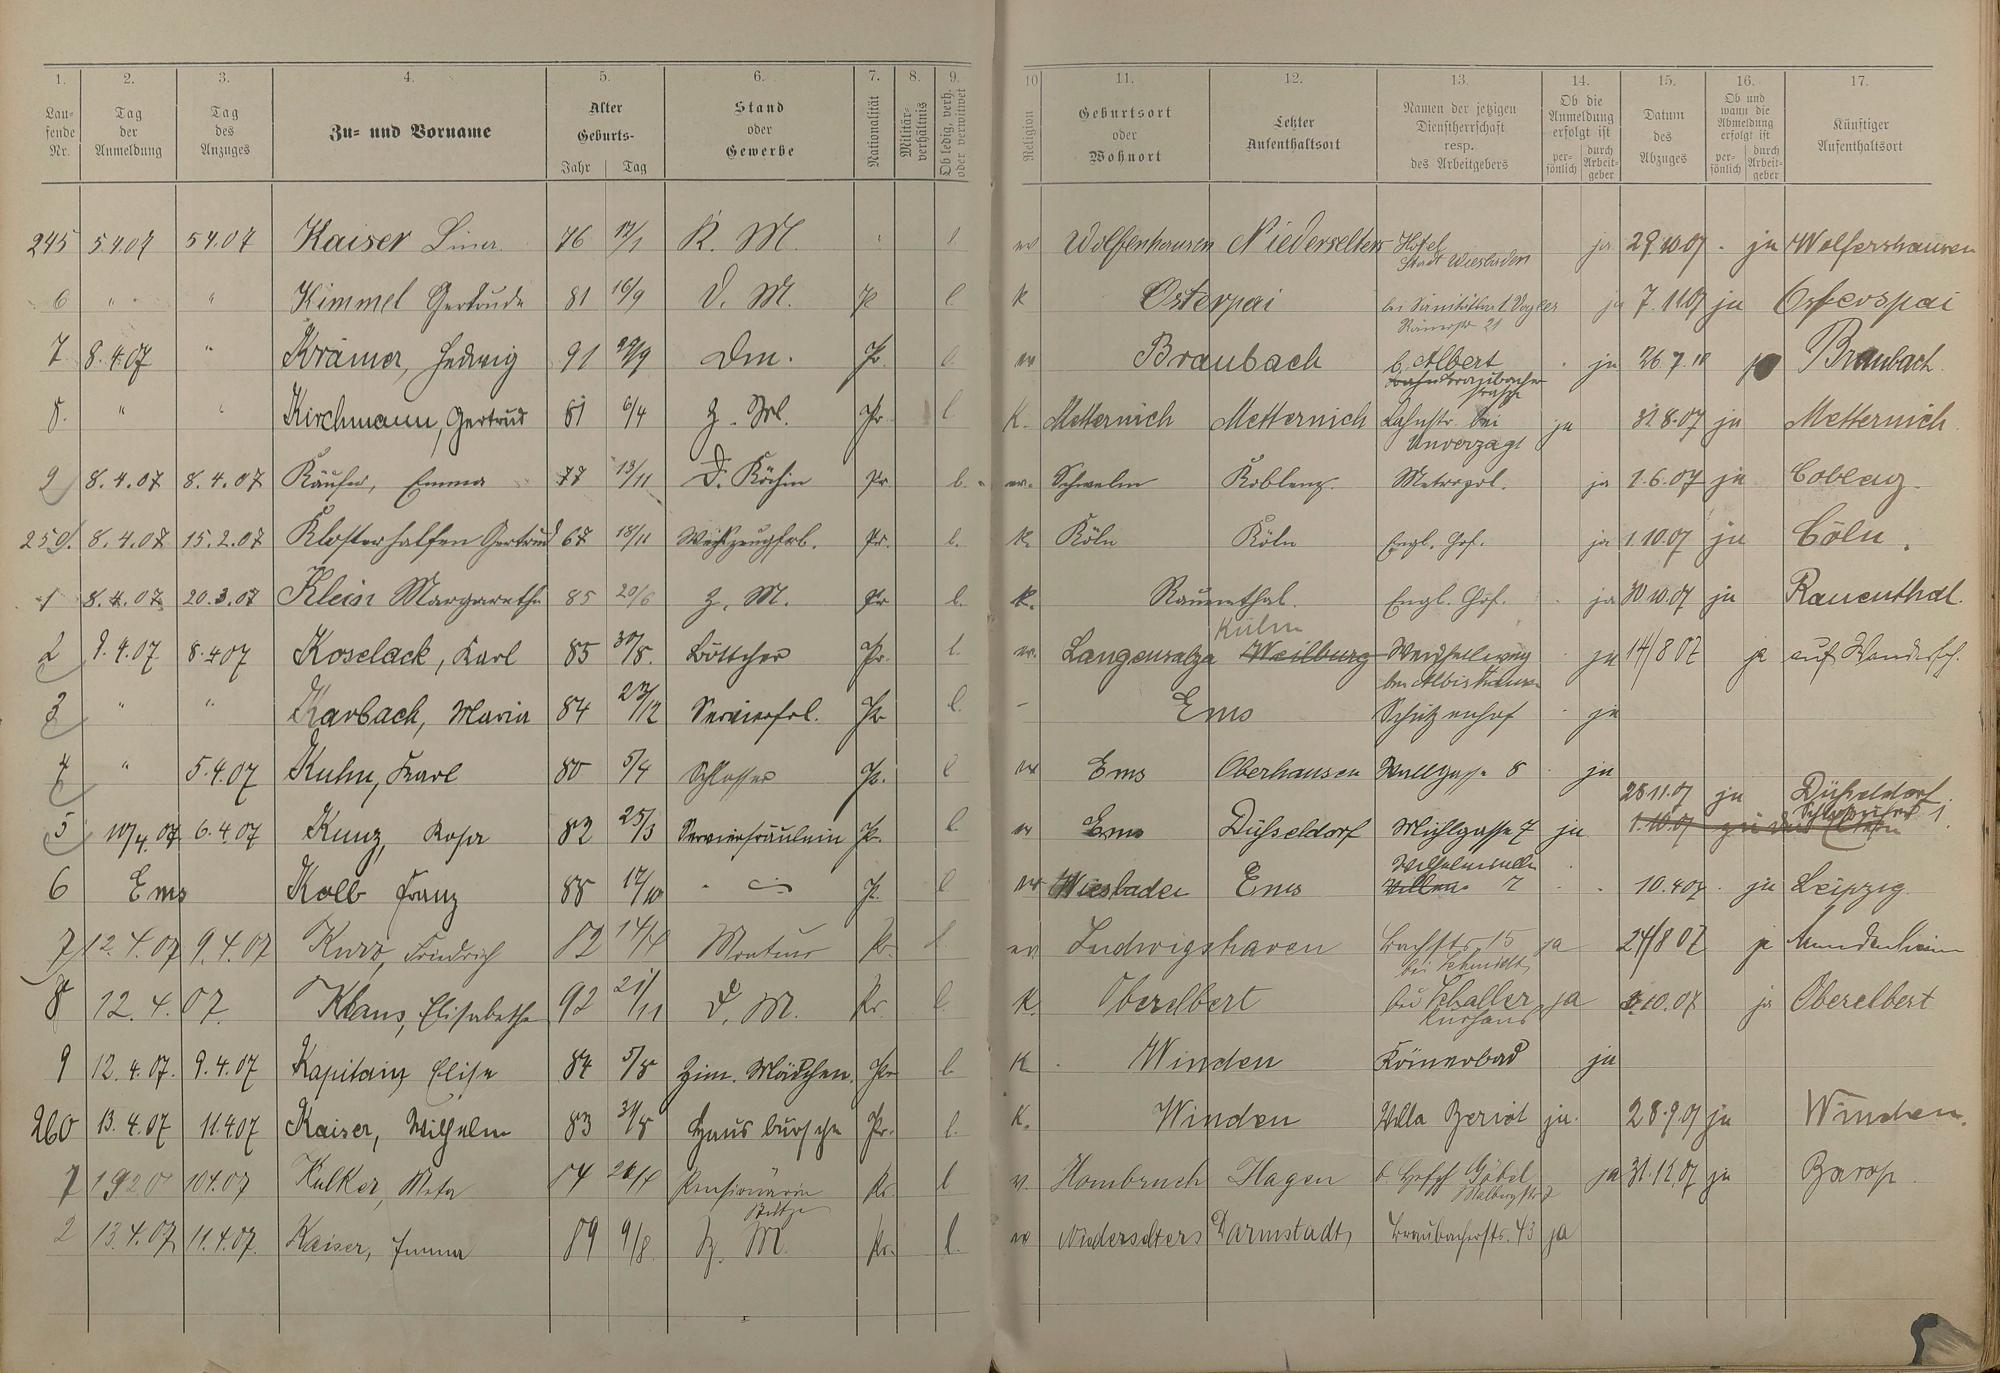 1. 2. 3. 4. 5. 6. 7. 8. 9. 10 11. 12. 13. 14. 15. 16. 17.
Lau-fende Nr. Tag der Anmeldung Tag des Anzuges Zu- und Vorname Alter Geburts- Jahr Tag Stand oder Gewerbe Nationalität Militär-verhältnis Ob ledig, verh. oder verwitwet Religion Geburtsort oder Wohnort Letzter Aufenthaltsort Namen der jetzigen Dienstherrschaft resp. des Arbeitgebers Ob die Anmeldung erfolgt ist per-sönlich durch Arbeit-geber Datum des Abzuges Ob und wann die Abmeldung erfolgt ist per-sönlich durch Arbeit-geber Künftiger Aufenthaltsort
245 5 4 07 5 4.07 Kaiser Lina 76 K. M. l ev Wolfenhausen Niederselters Hotel Stadt Wiesbaden ja 29.10.07 ja Wolfershausen
6 " " Kimmel Gertrude 81 16/9 D. M. l. k Osterpai bei Sanitätsrat Vogler Römerstr 21 ja 7.11.07 ja Osterspai
7 8.4.07 " Krämer, Hedwig 91 29/9 Dm. Pr l. ev Braubach b. Albert ja 26.7. Braubach.
8. " " Kirchmann, Gertrud 81 6/4 Z. Ml. Pr. l. K. Metternich Metternich Lahnstr. bei Unverzagt ja 31.8.07 ja Metternich
9 8.4.07 8.4.07 Käufer, Emma 77 13/11 D. Köchin Pr l. ev. Schwelm Koblenz. Metropol. ja 1.6.07 ja Coblenz.
250. 8.4.07 15.2.07 Klosterhalfen Gertrud 67 18/11 Weißzeugfrl. Pr. l. k. Köln Köln Engl. Hof. ja 1.10.07 ja Cöln.
1 8.4.07 20.3.07 Klein Margarethe 85 20/6 Z. M. Pr l. k. Rauenthal. Engl. Hof. ja 30 10.07 ja Rauenthal.
2 9.4.07 8.4 07 Koselack, Karl 85 30/8. Böttcher Pr. l. ev. Langensalza Weilburg Kulm bei ja 14/8 07 ja auf Wandersch.
3 " " Karbach, Maria 84 Servierfrl. Pr l. - Ems Schützenhof ja
4 " 5.4.07 Kuhn, Karl 80 5/4 Schlosser Pr. l ev Ems Oberhausen Wallgasse 8 ja
5 10/4.07 6.4.07 Kunz, Rosa 82 25/3 Servierfräulein Pr. l ev Ems Düsseldorf Mühlgasse 7 ja 25 11.07 ja Düsseldorf
6 Ems Kolb Franz 88 17/10 Pr. l ev Wiesbaden Ems 7 10.4 07 ja Leipzig
7 12.4.07 9.4.07 Kurz, Friedrich 82 14/4 Monteur Pr. l. ev Ludwigshaven Bachstr. 15 bei Schmidt ja 24/8 07 ja Mundenheim
8 12.4.07. Klaus, Elisabethe 92 21/11 D. M. Pr. l. K. Oberelbert bei Schaller Kurhaus ja 10.07 ja Oberelbert
9 12.4.07. 9.4.07 Kapitain Elise 84 5/8 Zim. Mädchen. Pr l. K. Winden Römerbad ja
260 13.4.07 11.4 07 Kaiser, Wilhelm 83 31/8 Hausbursche Pr. l. K. Winden Villa Beriot ja. 28.9.07 ja Winden.
1 1920 10 4.07 Kulker, Meta 84 Pensionärin Stütze Pr. l v. Hombruch Hagen b. Göbel ja 31.12.07 ja Barop
2 13.4.07 11.4.07. Kaiser, Emma 89 9/8 Z. M. Pr. l. ev Niederselters Darmstadt, Braubacherstr. 43 ja